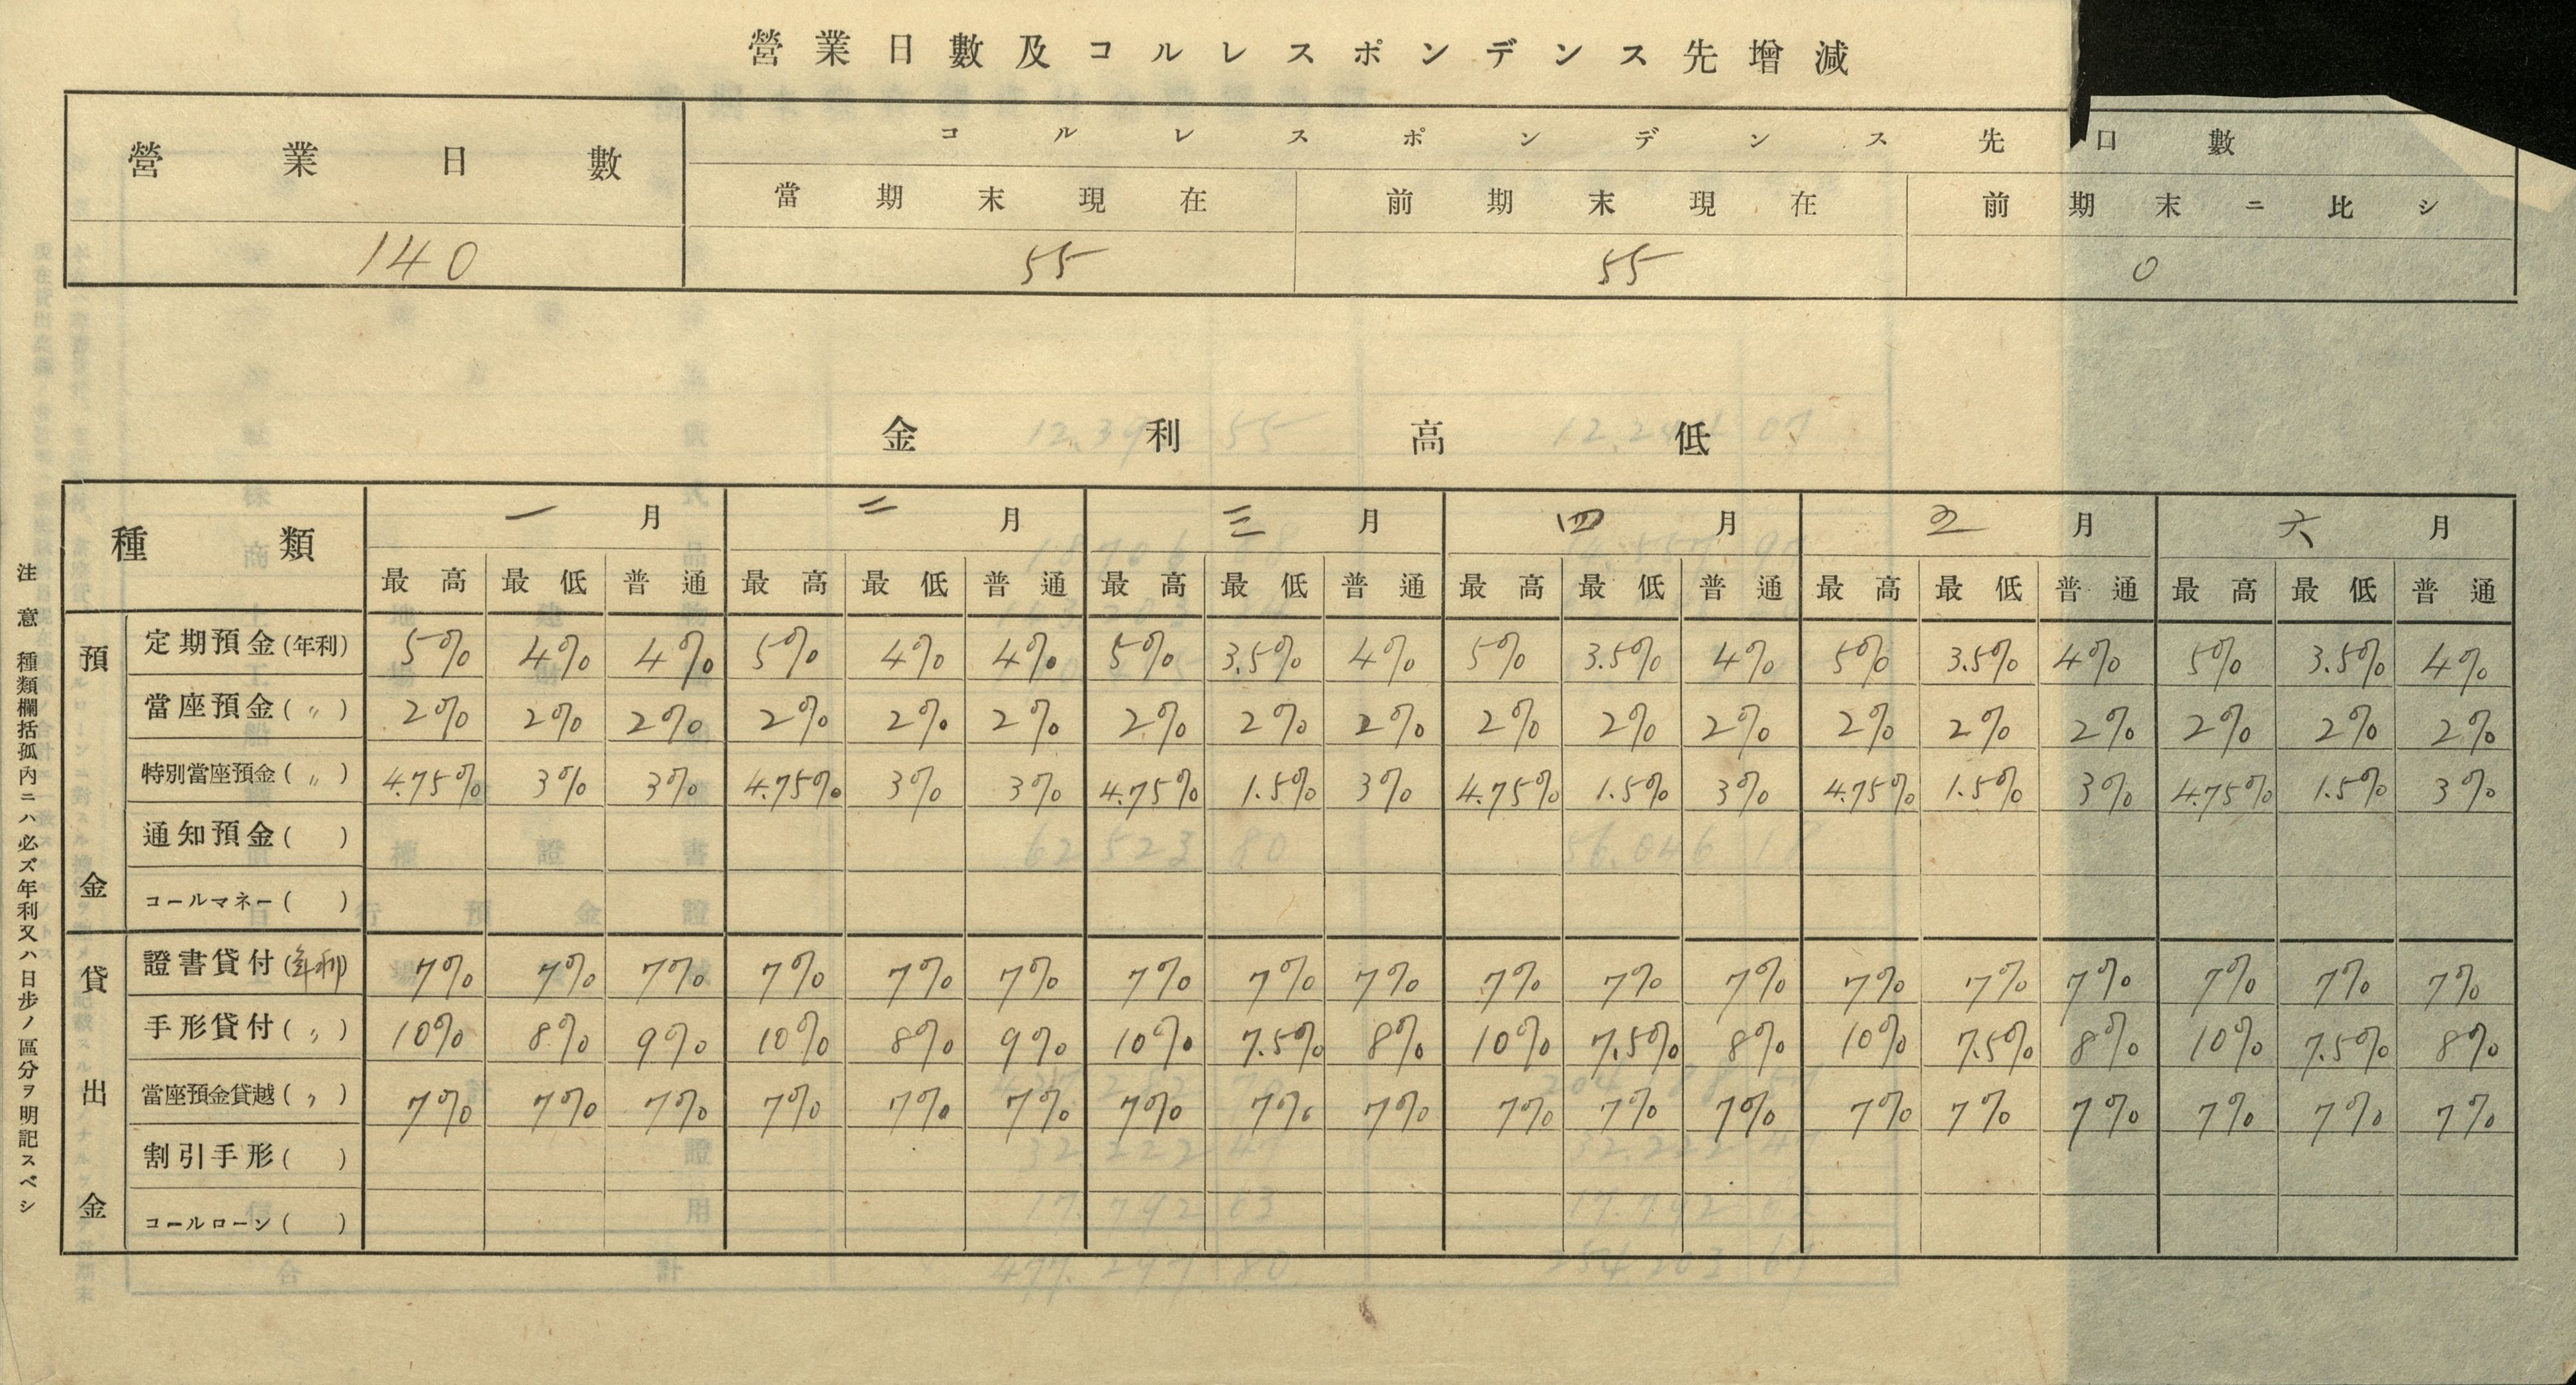 營業日數及コルレスポンデンス先增減
營業日數 コルレスポンデンス先口數
當期末現在 前期末現在 前期末ニ比シ
140 55 55 0
金利高低
種類 一月 二月 三月 四月 五月 六月
最高 最低 普通 最高 最低 普通 最高 最低 普通 最高 最低 普通 最高 最低 普通 最高 最低 普通
預金
定期預金(年利) 5% 4% 4% 5% 4% 4% 5% 3.5% 4% 5% 3.5% 4% 5% 3.5% 4% 5% 3.5% 4%
當座預金(〃) 2% 2% 2% 2% 2% 2% 2% 2% 2% 2% 2% 2% 2% 2% 2% 2% 2% 2%
特別當座預金(〃) 4.75% 3% 3% 4.75% 3% 3% 4.75% 1.5% 3% 4.75% 1.5% 3% 4.75% 1.5% 3% 4.75% 1.5% 3%
通知預金( )
コールマネー( )
貸出金
證書貸付(年利) 7% 7% 7% 7% 7% 7% 7% 7% 7% 7% 7% 7% 7% 7% 7% 7% 7% 7%
手形貸付(〃) 10% 8% 9% 10% 8% 9% 10% 7.5% 8% 10% 7.5% 8% 10% 7.5% 8% 10% 7.5% 8%
當座預金貸越(〃) 7% 7% 7% 7% 7% 7% 7% 7% 7% 7% 7% 7% 7% 7% 7% 7% 7% 7%
割引手形( )
コールローン( )
注意 種類欄括孤內ニハ必ズ年利又ハ日步ノ區分ヲ明記スベシ